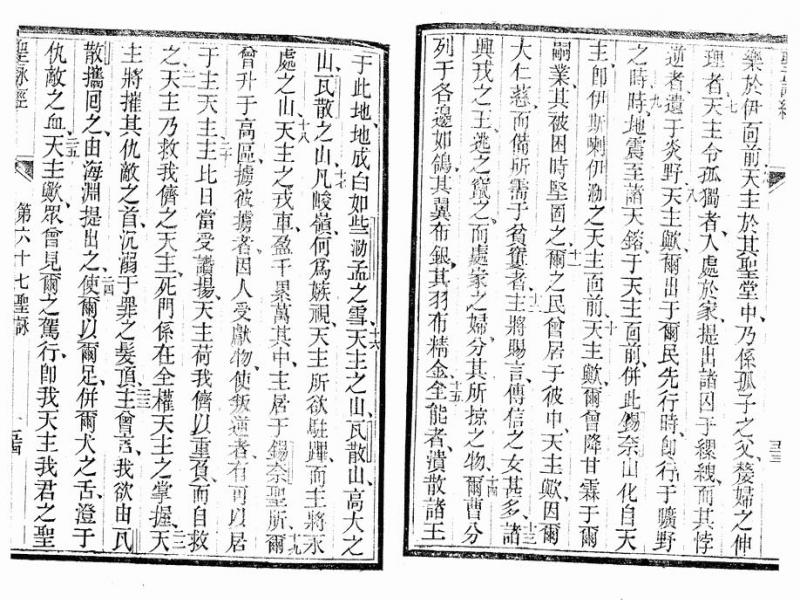 聖詠經 五三
樂於伊面前、天主於其聖堂中、乃係孤子之父、嫠婦之伸
理者、七天主令孤獨者、入處於家、提出諸囚于縲絏、而其悖
逆者、遺于炎野、八天主歟、爾出于爾民先行時、卽行于曠野
之時、九時地震至諸天鎔于天主面前、併此錫奈山化自天
主、卽伊斯喇伊泐之天主面前、十天主歟、爾曾降甘霖于爾
嗣業、其被困時堅固之、十一爾之民曾居于彼中、天主歟、因爾
大仁慈、而備所需于貧窶者、十二主將賜言、傳信之女甚多、十三諸
興戎之王、逃之竄之、而處家之婦、分其所掠之物、十四爾曹分
列于各邊如鴿、其翼布銀、其羽布精金、十五全能者、潰散諸王
于此地、地成白如些泐孟之雪、十六天主之山、瓦散山、高大之
山、瓦散之山、十七凡峻嶺、何爲嫉視、天主所欲駐蹕、而主將永
處之山、十八天主之戎車、盈千累萬、其中主居于錫奈聖所、十九爾
曾升于高區、擄彼擄者、因人受獻物、使叛逆者、有可以居
于主天主、二十主比日當受讚揚、天主荷我儕以重負、而自救
之、二一天主乃救我儕之天主、死門係在全權天主之掌握、二二天
主將摧其仇敵之首、沉溺于罪之髮頂、二三主曾言、我欲由瓦
散攜囘之、由海淵提出之、二四使爾以爾足、併爾犬之舌、澄于
仇敵之血、二五天主歟、眾曾見爾之駕行、卽我天主我君之聖
聖詠經 第六十七聖詠 五四